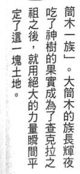 筒木一族—！大筒木的族長輝夜
吃了神樹的果實成為了查克拉之
祖之後，就用絕大的力量瞬間平
定了這一塊土地。